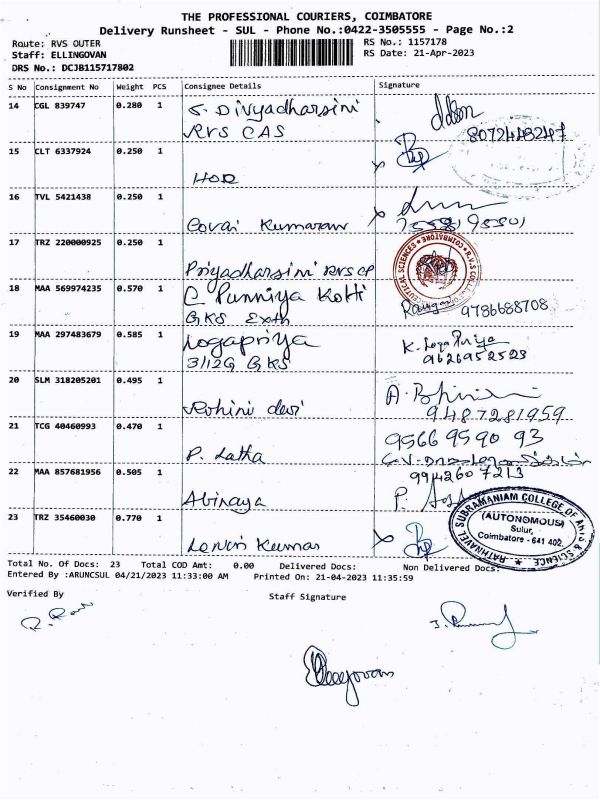 THE PROFESSIONAL COURIERS, COIMBATORE
Delivery Runsheet - SUL - Phone No.:0422-3505555 - Page No.:2
Route: RVS OUTER
RS No.: 1157178
Staff: ELLINGOVAN
RS Date: 21-Apr-2023
DRS No.: DCJB115717802
S No Consignment No Weight PCS Consignee Details Signature
14 CGL 839747 0.280 1 S. Divyadharsini
RVS CAS
8072448247
15 CLT 6337924 0.250 1
HOD
16 TVL 5421438 0.250 1
Covai Kumaran
17 TRZ 220000925 0.250 1
Priyadharsini RVS CP
18 MAA 569974235 0.570 1 C Punniya Kotti
9786688708
19 MAA 297483679 0.585 1 Logapriya
K. Loga Priya
3/126 GKS
9626952523
20 SLM 318205201 0.495 1
Rohini devi
9487281959
21 TCG 40460993 0.470 1
9566959093
P. Latha
22 MAA 857681956 0.505 1
9942607213
Abinaya
23 TRZ 35460030 0.770 1
Lenin Kumar
RATHNAVEL SUBRAMANIAM COLLEGE OF ARTS & SCIENCE
(AUTONOMOUS)
Sulur,
Coimbatore - 641 402.
Total No. Of Docs: 23 Total COD Amt: 0.00 Delivered Docs: Non Delivered Docs:
Entered By :ARUNCSUL 04/21/2023 11:33:00 AM Printed On: 21-04-2023 11:35:59
Verified By
Staff Signature